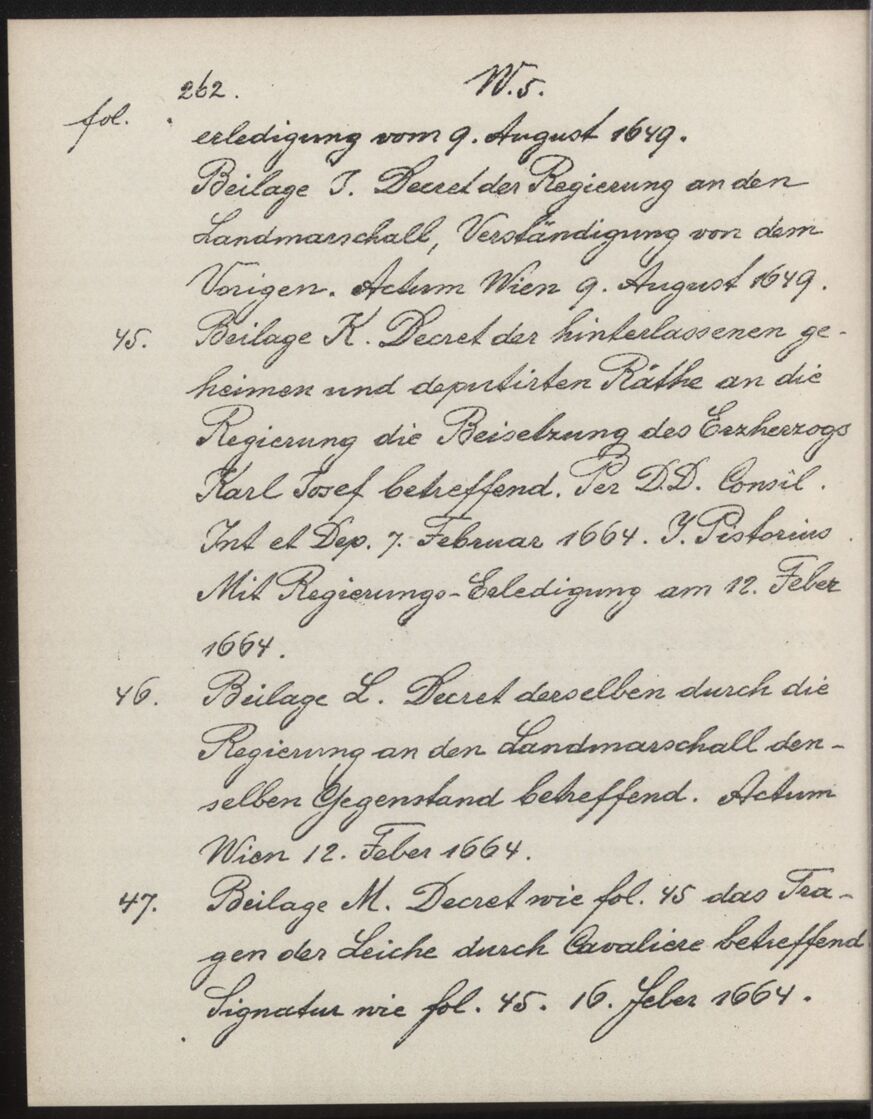 262. W.5.
fol.
erledigung vom 9. August 1649.
Beilage J. Decret der Regierung an den
Landmarschall, Verständigung von dem
Vorigen. Actum Wien 9. August 1649.
45. Beilage K. Decret der hinterlassenen ge-
heimen und deputirten Räthe an die
Regierung die Beisetzung des Erzherzogs
Karl Josef betreffend. Per D.D. Consil.
Int et Dep. 7. Februar 1664. J. Pistorius.
Mit Regierungs-Erledigung am 12. Feber
1664.
46. Beilage L. Decret derselben durch die
Regierung an den Landmarschall den-
selben Gegenstand betreffend. Actum
Wien 12. Feber 1664.
47. Beilage M. Decret wie fol. 45 das Tra-
gen der Leiche durch Cavaliere betreffend
Signatur wie fol. 45. 16. Feber 1664.